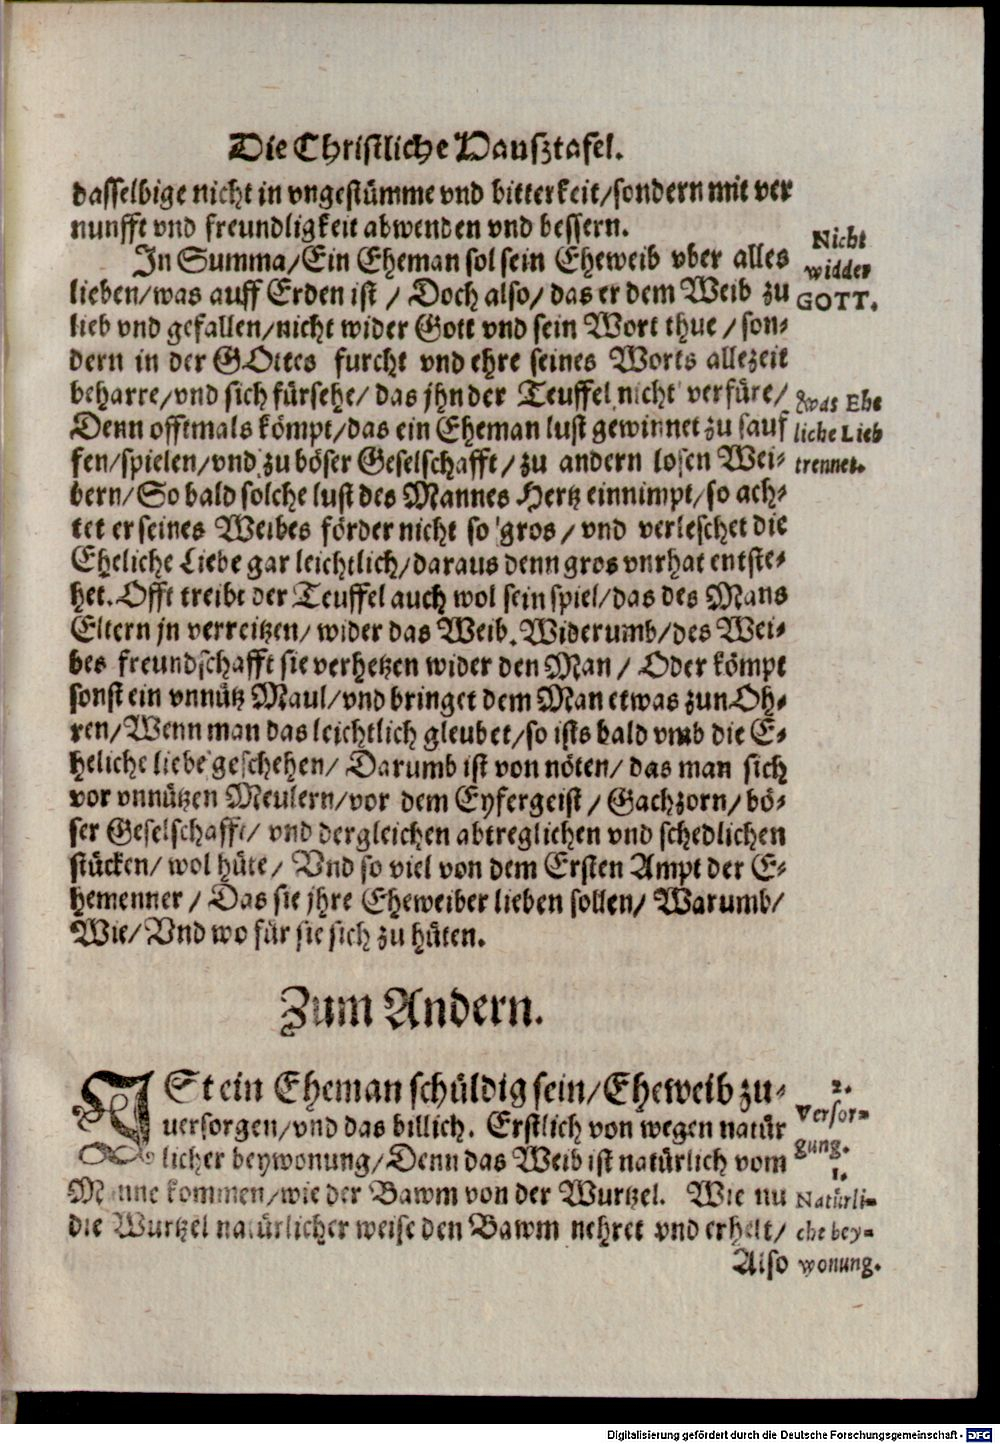 Die Christliche Hausztafel.
dasselbige nicht in vngestümme vnd bitterkeit/sondern mit ver
nunfft vnd freundligkeit abwenden vnd bessern.
In Summa/Ein Eheman sol sein Eheweib vber alles
lieben/was auff Erden ist / Doch also/ das er dem Weib zu
lieb vnd gefallen/nicht wider Gott vnd sein Wort thue / son-
dern in der GOttes furcht vnd ehre seines Worts allezeit
beharre/vnd sich fürsehe/ das jhn der Teuffel nicht verfüre/
Denn offtmals kömpt/das ein Eheman lust gewinnet zu sauf
fen/spielen/vnd zu böser Geselschafft/ zu andern losen Wei-
bern/ So bald solche lust des Mannes Hertz einnimpt/so ach-
tet er seines Weibes förder nicht so gros / vnd verleschet die
Eheliche Liebe gar leichtlich/daraus denn gros vnrhat entste-
het. Offt treibt der Teuffel auch wol sein spiel/das des Mans
Eltern jn verreitzen/ wider das Weib. Widerumb/des Wei-
bes freundschafft sie verhetzen wider den Man / Oder kömpt
sonst ein vnnütz Maul/vnd bringet dem Man etwas zun Oh-
ren/Wenn man das leichtlich gleubet/so ists bald vmb die E-
heliche liebe geschehen/ Darumb ist von nöten/ das man sich
vor vnnützen Meulern/vor dem Eyfergeist / Gachzorn/ bö-
ser Geselschafft/ vnd dergleichen abtreglichen vnd schedlichen
stücken/ wol hüte/ Vnd so viel von dem Ersten Ampt der E-
hemenner / Das sie jhre Eheweiber lieben sollen/ Warumb/
Wie/ Vnd wo für sie sich zu hüten.
Nicht
widder
GOTT.
was Ehe
liche Lieb
trennet.
Zum Andern.
ISt ein Eheman schüldig sein/Eheweib zu-
uersorgen/vnd das billich. Erstlich von wegen natür
licher beywonung/Denn das Weib ist natürlich vom
Manne kommen/wie der Bawm von der Wurtzel. Wie nu
die Wurtzel natürlicher weise den Bawm nehret vnd erhelt/
Also
2.
Versor-
gung.
1.
Natürli-
che bey-
wonung.
Digitalisierung gefördert durch die Deutsche Forschungsgemeinschaft - DFG